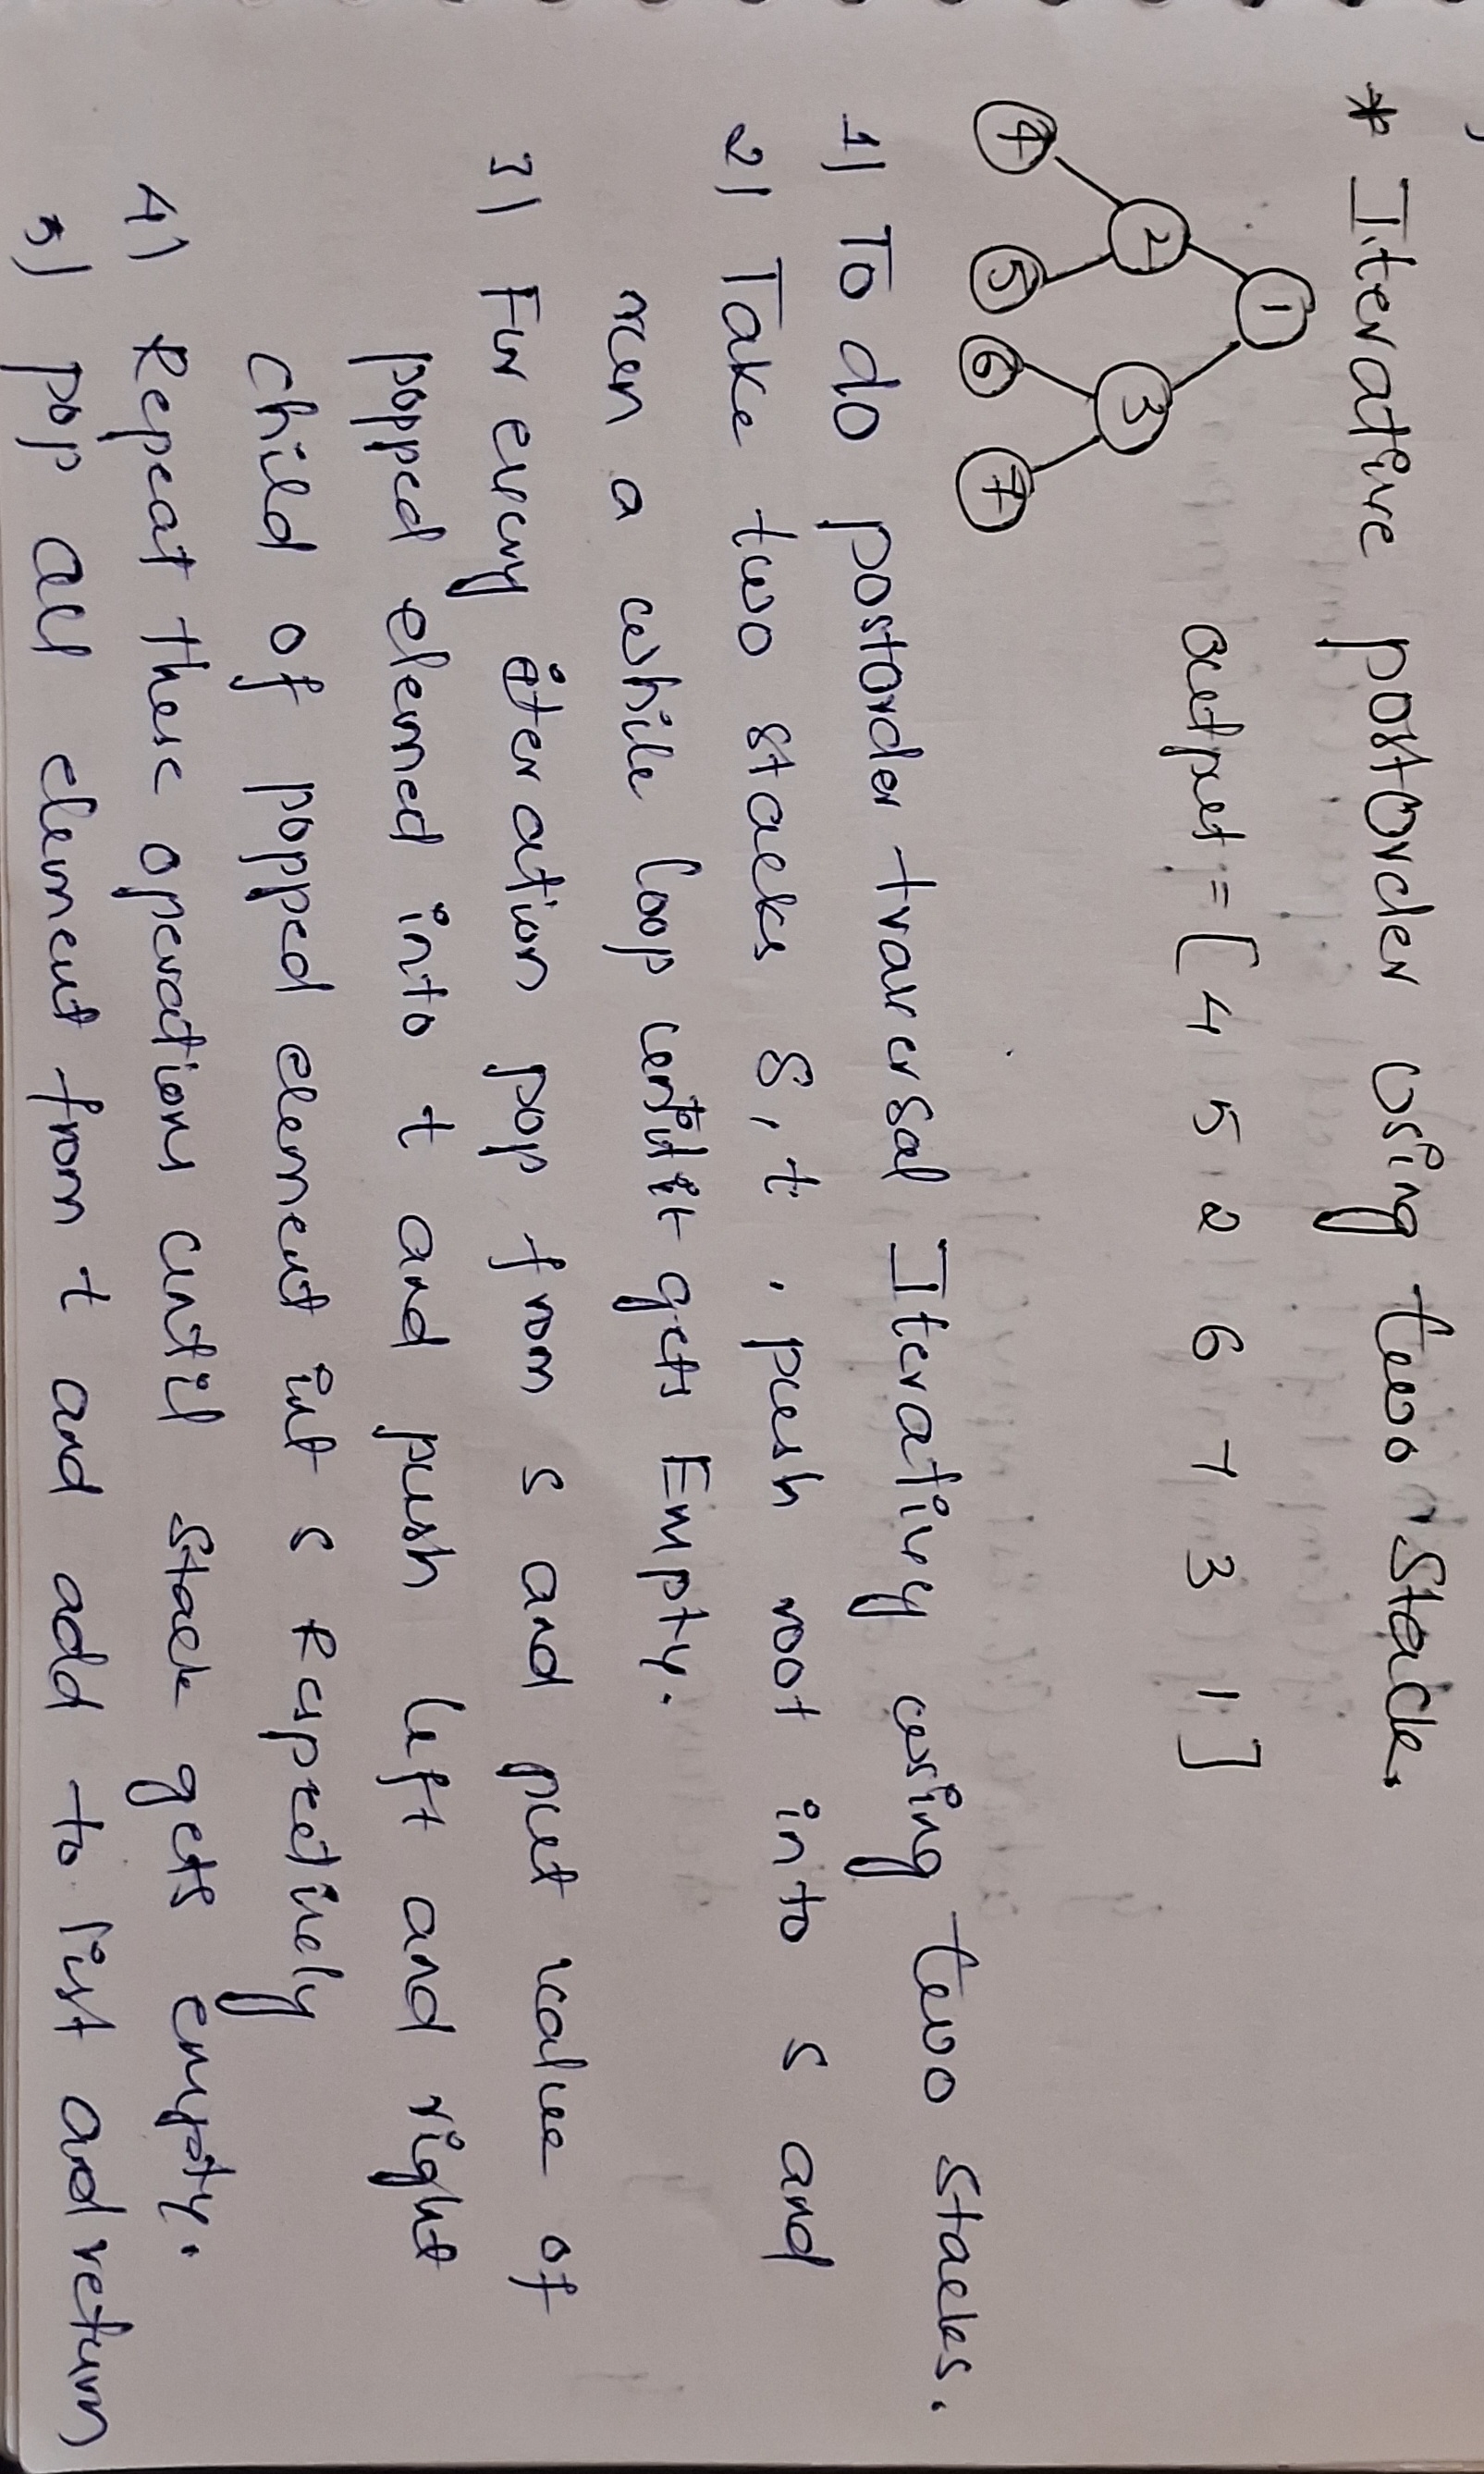 * Iterative postorder using two stack.
1
2 3
4 5 6 7
output = [ 4 5 2 6 7 3 1 ]
1) To do postorder traversal Iterativey using two stacks.
2) Take two stacks s, t . push root into s and
run a while loop until it gets Empty.
3) For every iteration pop from s and put value of
popped elemed into t and push left and right
child of popped element int s Respectively
4) Repeat these operations until stack gets empty.
5) pop all element from t and add to list and return